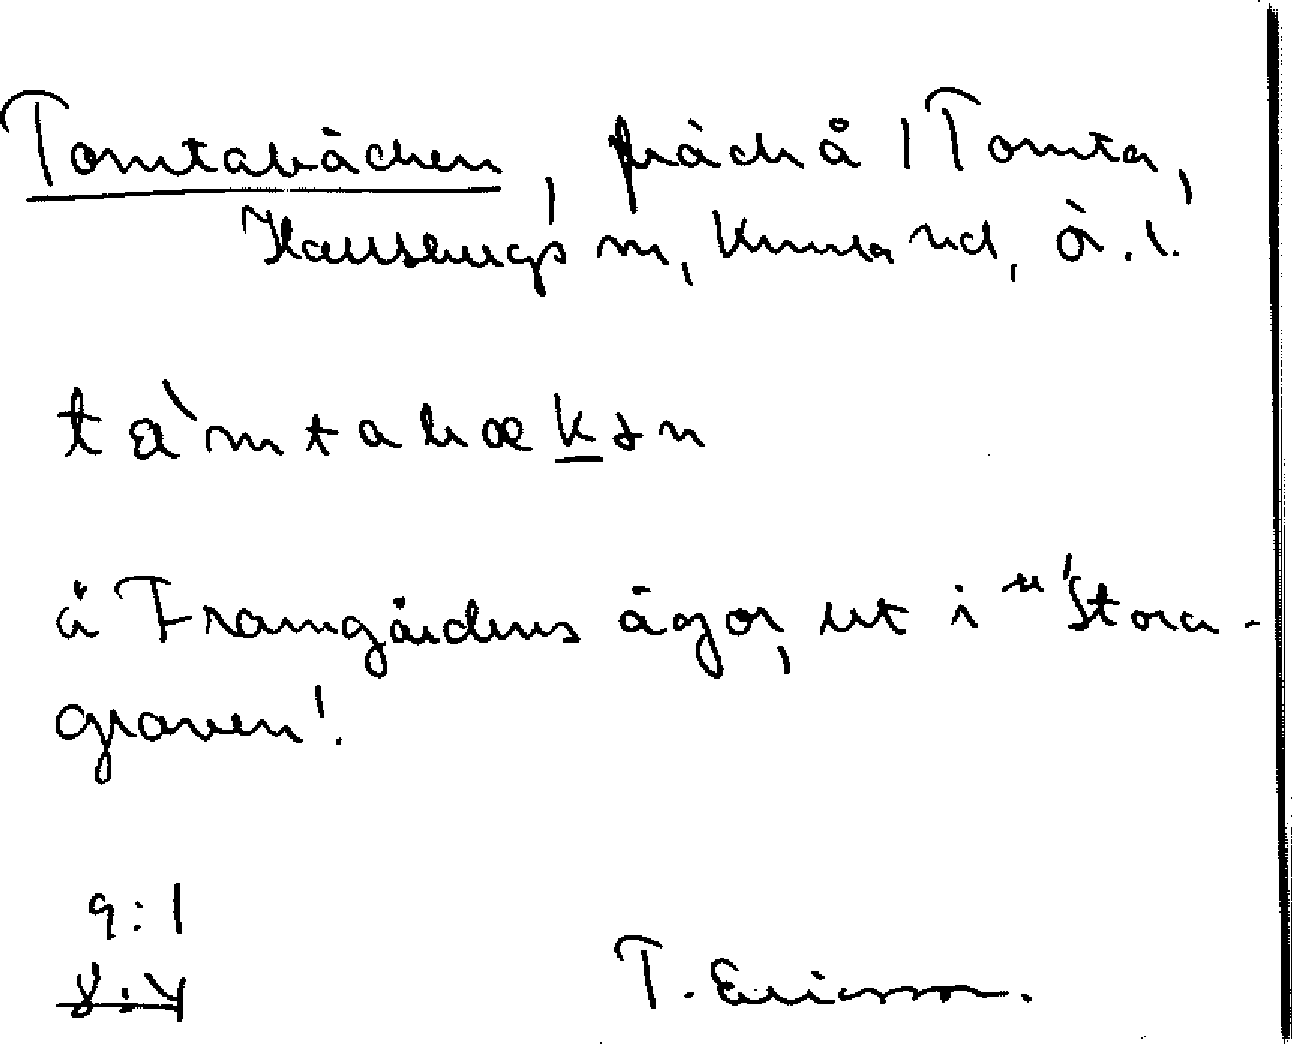 Tomtabäcken, bäck å Tomta,
Hallsbergs sn, Kumla hd, Ör. l.
tå`mtabækən
å Framgårdens ägor, ut i "Stora-
graven".
9:1
8:4
T. Ericsson.